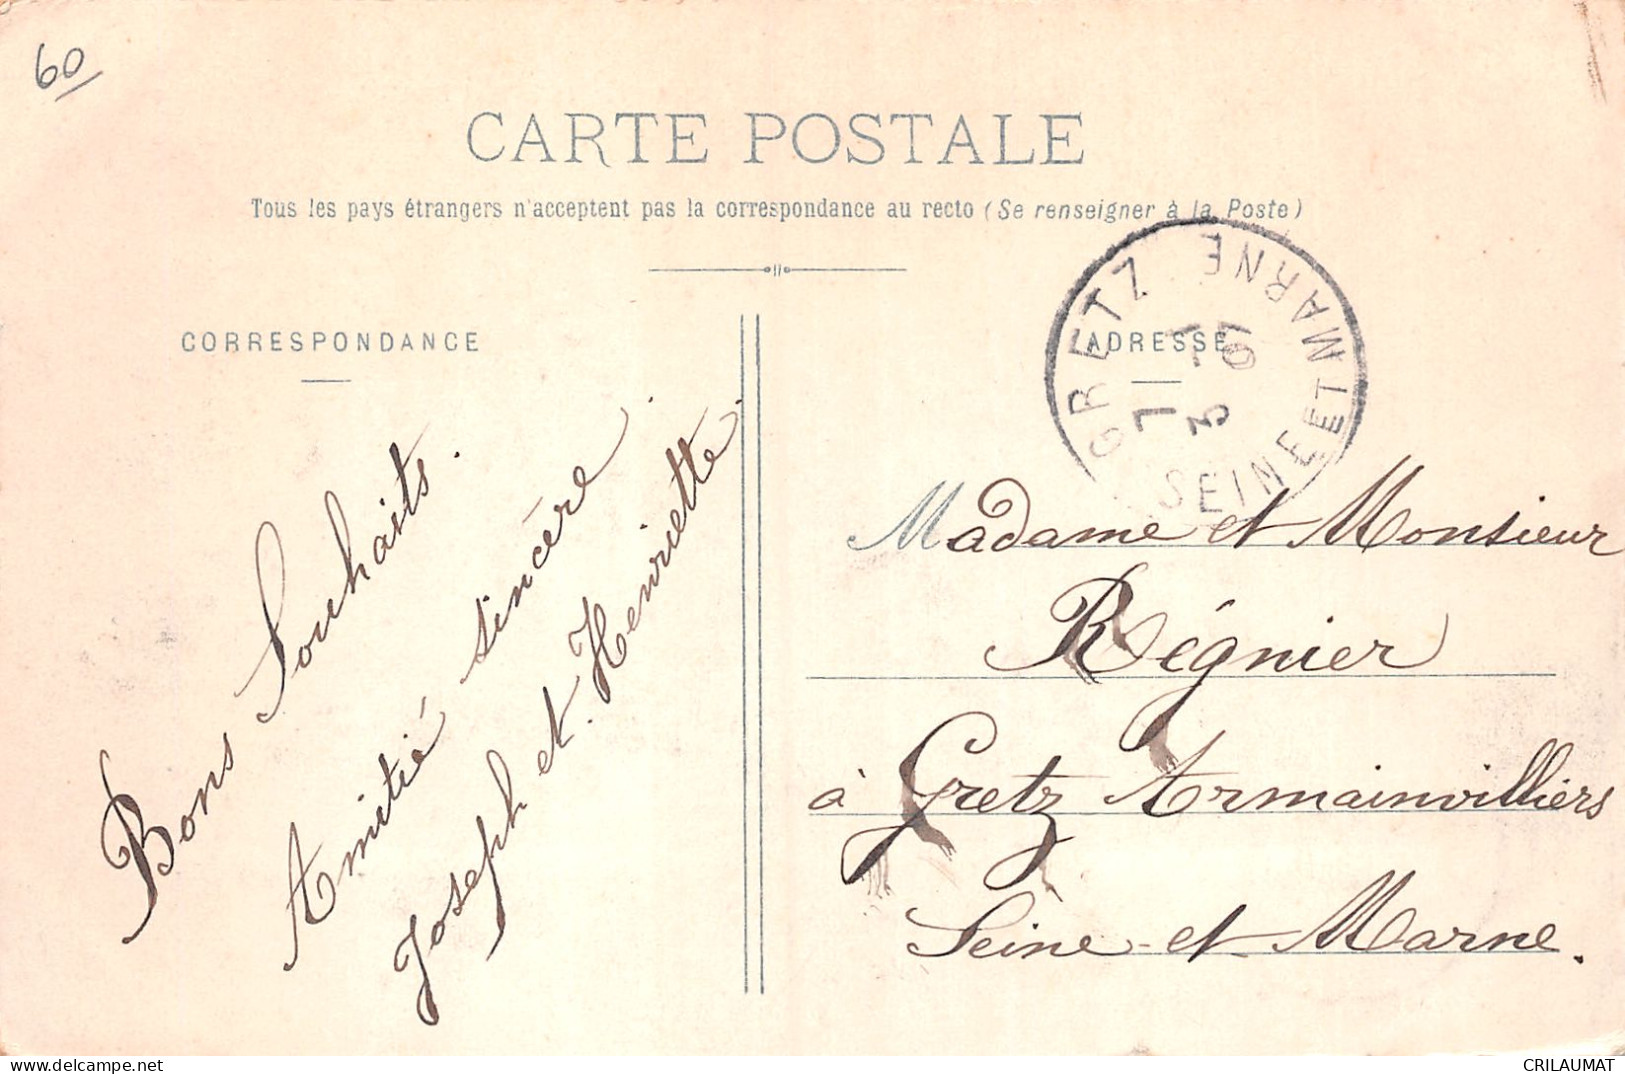 60
CARTE POSTALE
Tous les pays étrangers n'acceptent pas la correspondance au recto (Se renseigner à la Poste)
CORRESPONDANCE
Bons Souhaits.
Amitié sincère.
Joseph et Henriette.
ADRESSE
GRETZ SEINE ET MARNE
3
Madame et Monsieur
Régnier
à Gretz Armainvilliers
Seine-et-Marne.
CRILAUMAT